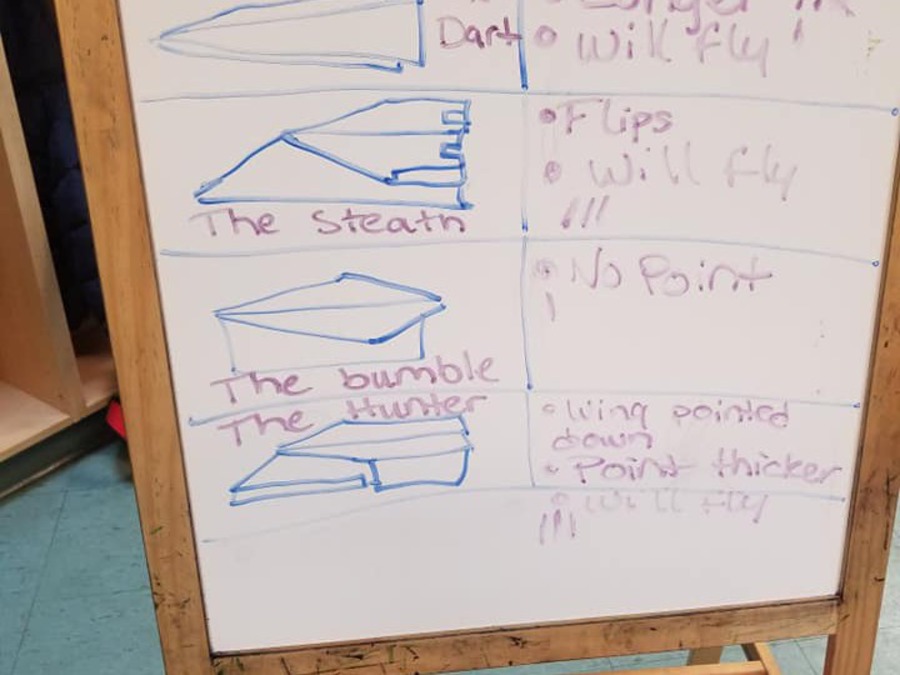 Dart
• Will fly
• Flips
• Will fly
The Steath
• No Point
The bumble
The Hunter
• Wing pointed
down
• Point thicker
• Will fly